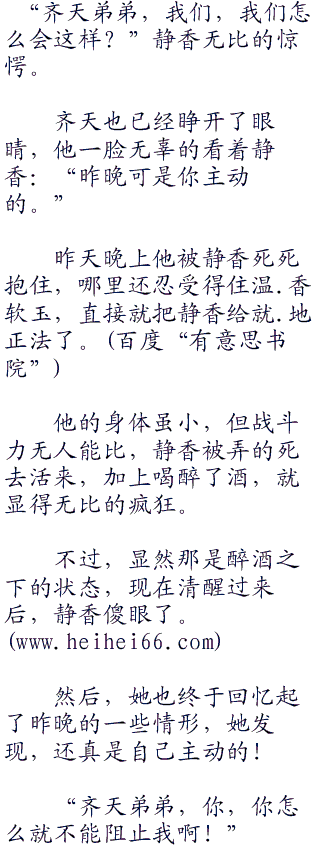 “齐天弟弟，我们，我们怎
么会这样？”静香无比的惊
愕。
齐天也已经睁开了眼
睛，他一脸无辜的看着静
香：“昨晚可是你主动
的。”
昨天晚上他被静香死死
抱住，哪里还忍受得住温.香
软玉，直接就把静香给就.地
正法了。(百度“有意思书
院”)
他的身体虽小，但战斗
力无人能比，静香被弄的死
去活来，加上喝醉了酒，就
显得无比的疯狂。
不过，显然那是醉酒之
下的状态，现在清醒过来
后，静香傻眼了。
(www.heihei66.com)
然后，她也终于回忆起
了昨晚的一些情形，她发
现，还真是自己主动的！
“齐天弟弟，你，你怎
么就不能阻止我啊！”